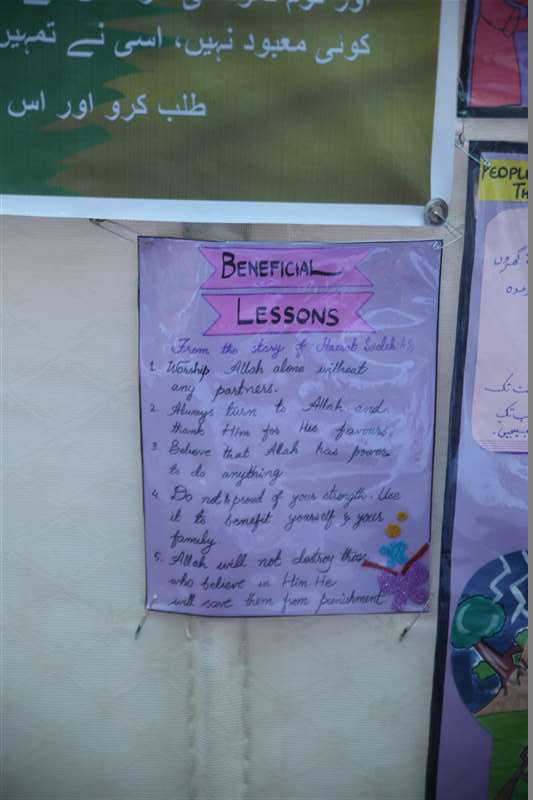 کوئی معبود نہیں، اسی نے تمہیں
طلب کرو اور اس
BENEFICIAL
LESSONS
From the story of Hazrat Saleh A.S
1. Worship Allah alone without
any partners.
2. Always turn to Allah and
thank Him for His favours.
3. Believe that Allah has power
to do anything
4. Do not b proud of your strength. Use
it to benefit yourself & your
family
5. Allah will not destroy those
who believe in Him. He
will save them from punishment
PEOPLE
TH
گھروں